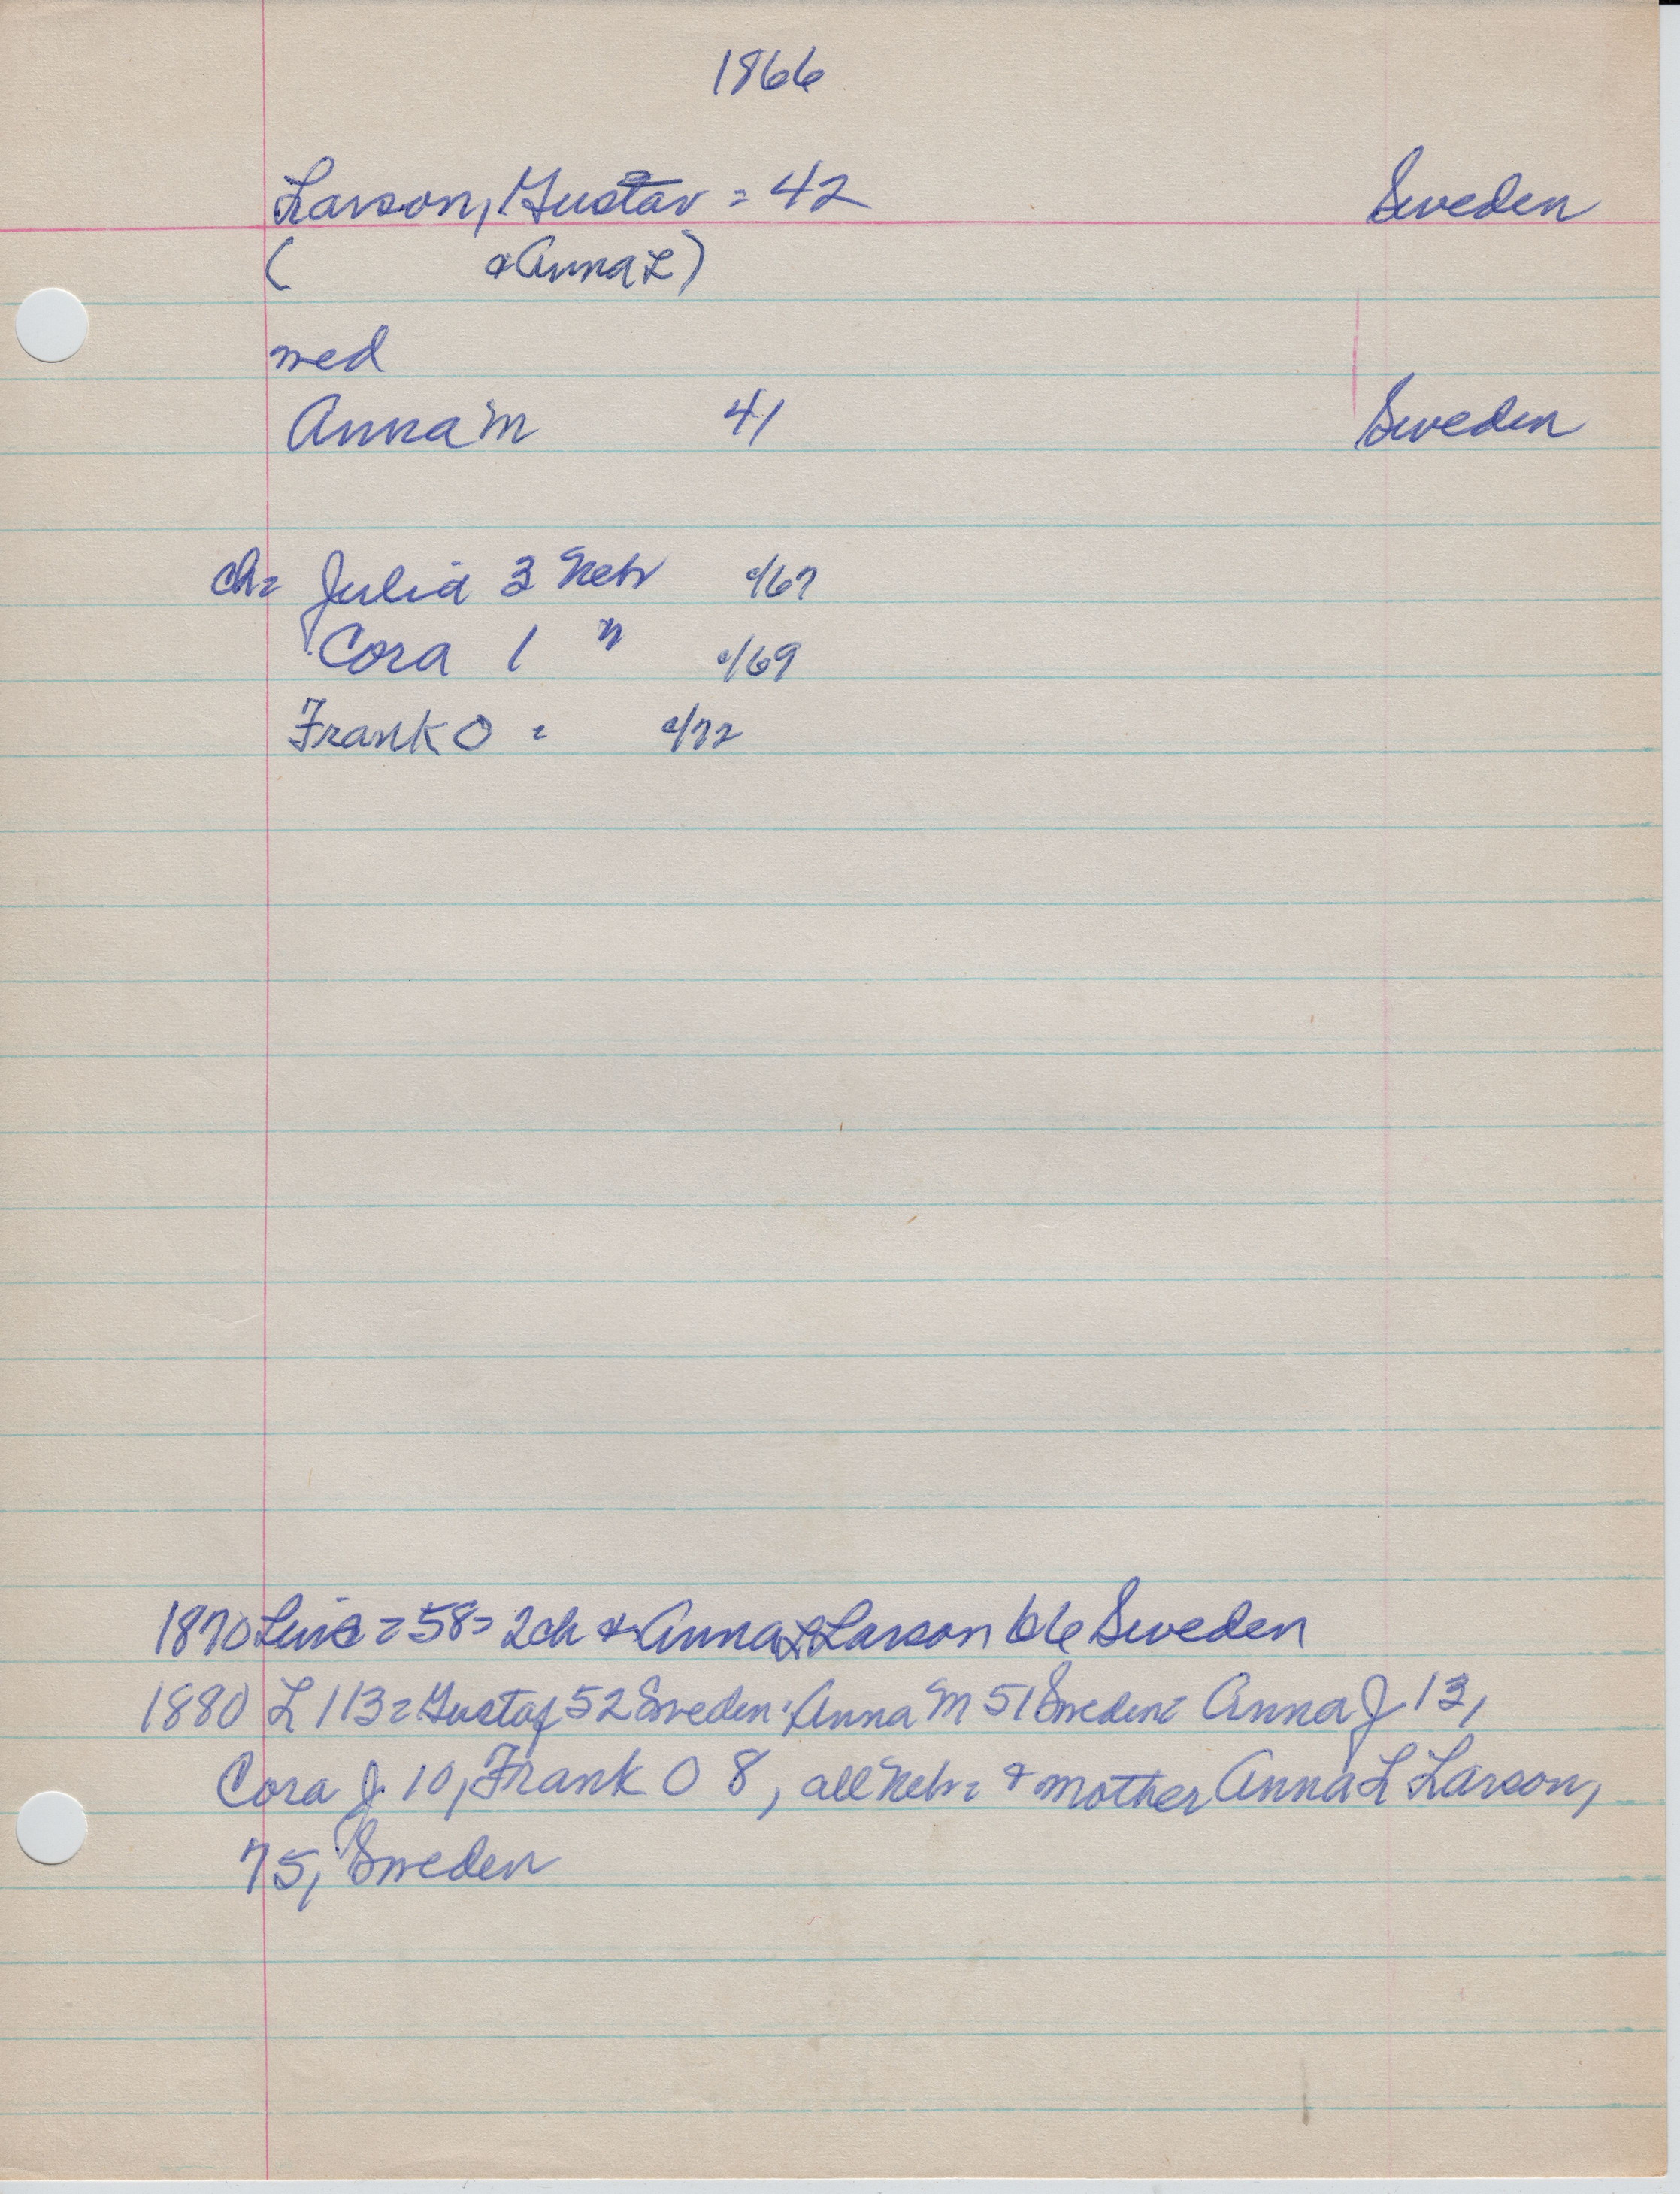 1866
Larson, Gustav = 42 Sweden
( & Anna L)
med
Anna M 41 Sweden
ch= Julia 3 Nebr c/67
Cora 1 " c/69
Frank O = c/72
1870 Line = 58 = 2ch & Anna L Larson 66 Sweden
1880 L 113 = Gustaf 52 Sweden: Anna M 51 Sweden= Anna J 13,
Cora J. 10, Frank O 8, all Nebr= & mother Anna L Larson,
75, Sweden